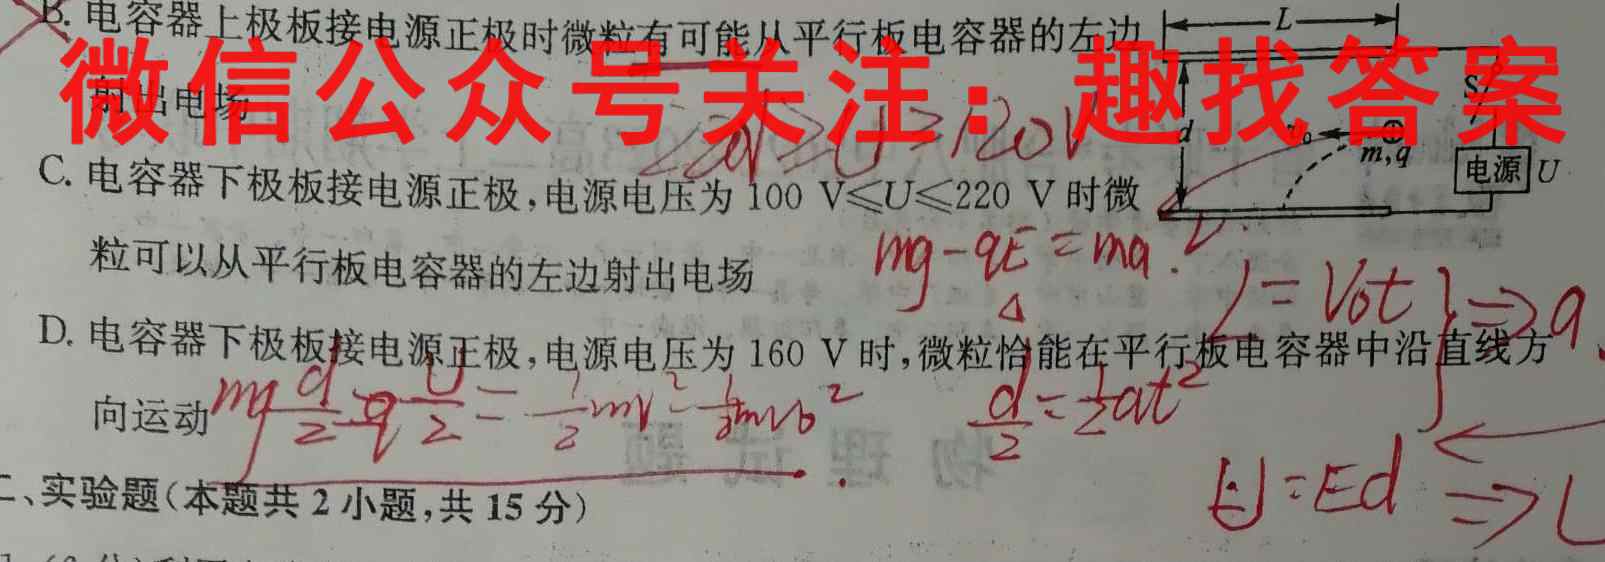 B. 电容器上极板接电源正极时微粒有可能从平行板电容器的左边
射出电场
微信公众号关注：趣找答案
L
S
d
v₀
m,q
电源 U
≥U≥120V
C. 电容器下极板接电源正极，电源电压为 100 V≤U≤220 V 时微
粒可以从平行板电容器的左边射出电场
mg-qE=ma.
L=V₀t
⇒a
D. 电容器下极板接电源正极，电源电压为 160 V 时，微粒恰能在平行板电容器中沿直线方
向运动
mg d/2 - q U/2 = 1/2 mv² - 1/2 mv₀²
d/2 = 1/2 at²
U=Ed ⇒
物理试题
二、实验题(本题共 2 小题，共 15 分)